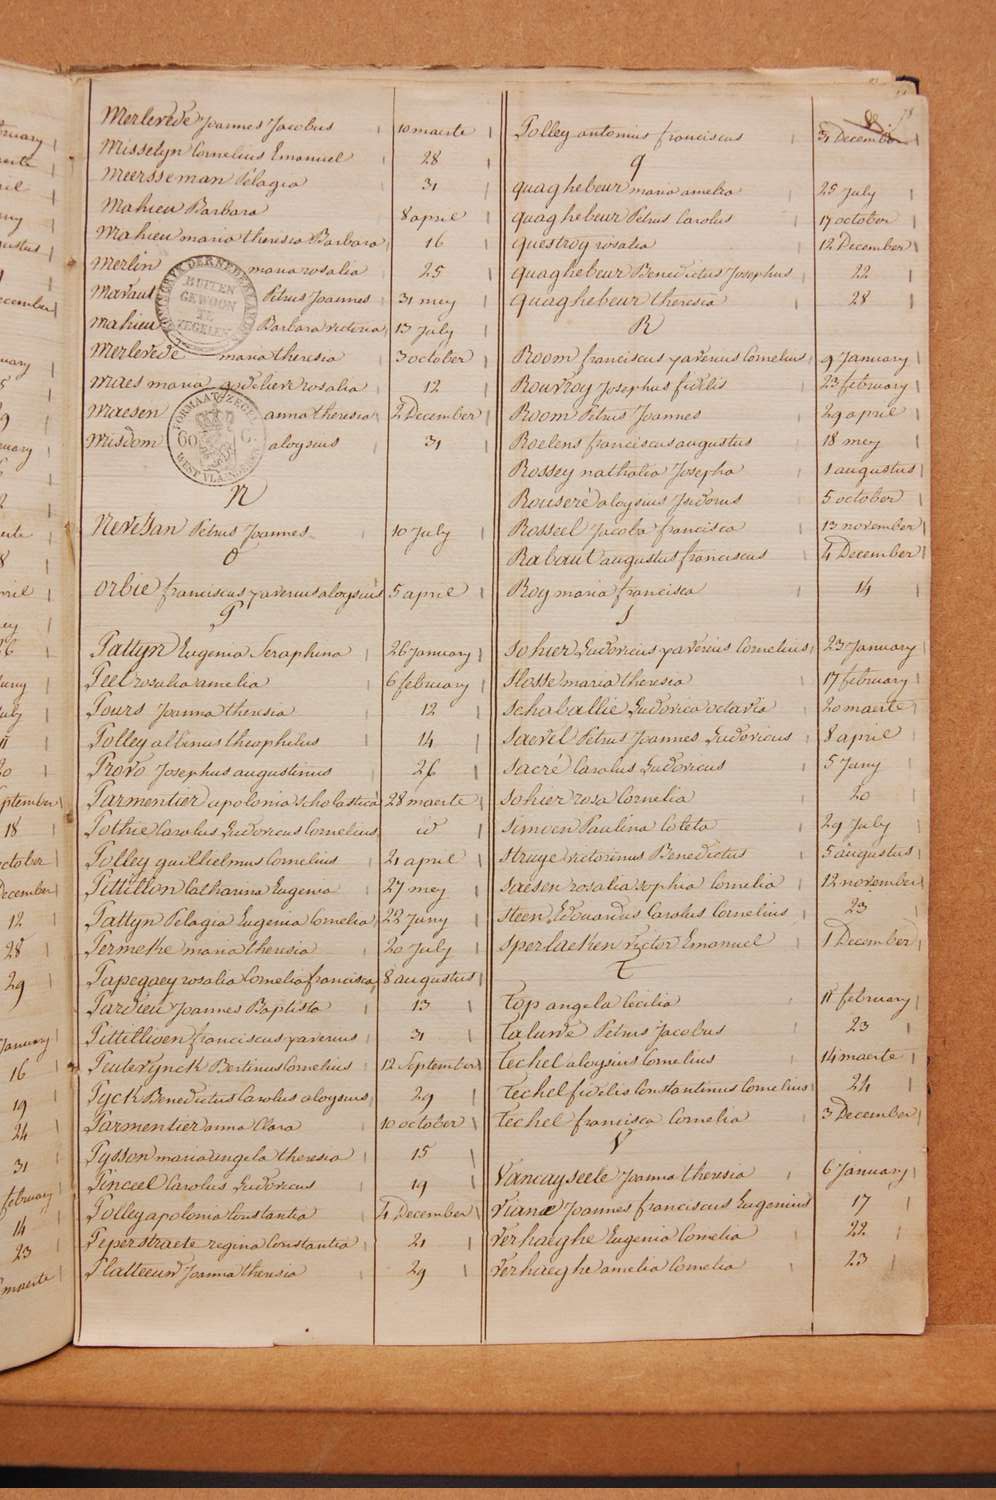 Merlevede Joannes Jacobus 10 maerte
Misselyn Cornelius Emanuel 28
Meersseman Pelagia 31
Mahieu Barbara 8 april
Mahieu maria theresia Barbara 16
Merlin maria rosalia 25
Maraut Petrus Joannes 31 mey
Mahieu Barbara victoria 13 July
Merlevede maria theresia 3 october
Maes maria godelieve rosalia 12
Maesen anna theresia 2 December
Misdom aloysius 31
KONINGRYK DER NEDERLANDEN
BUITEN
GEWOON
TE
ZEGELEN
FORMAAT ZEGEL
60 C.
WEST VLAENDEREN
N
Nevejan Petrus Joannes 10 July
O
Orbie franciscus xaverius aloysius 5 april
P
Pattyn Eugenia Seraphina 26 January
Peel rosalia amelia 6 february
Pours Joanna theresia 12
Polley albinus theophilus 14
Provo Josephus augustinus 26
Parmentier apolonia scholastica 28 maerte
Pothie Carolus Ludovicus Cornelius id
Polley guillielmus Cornelius 21 april
Pittillion Catharina Eugenia 27 mey
Pattyn Pelagia Eugenia Cornelia 22 Juny
Permeke maria theresia 20 July
Papegaey rosalia Cornelia francisca 8 augustus
Pardieu Joannes Baptista 13
Pittillioen franciscus xaverius 31
Peuterynck Bertinus Cornelius 12 September
Pyck Benedictus Carolus aloysius 29
Parmentier anna Clara 10 october
Pysson maria angela theresia 15
Pinceel Carolus Ludovicus 19
Polley apolonia Constantia 4 December
Peperstraete regina Constantia 21
Platteeuw Joanna theresia 29
Polley antonius franciscus 31 December
q
quaghebeur maria amelia 25 July
quaghebeur Petrus Carolus 17 october
questroy rosalia 12 December
quaghebeur Benedictus Josephus 22
quaghebeur theresia 28
R
Room franciscus xaverius Cornelius 9 January
Rouvroy Josephus fidelis 23 february
Room Petrus Joannes 29 april
Roelens franciscus augustus 18 mey
Rossey nathalia Josepha 1 augustus
Rouseré aloysius Isidorus 5 october
Rosseel Jacoba francisca 13 november
Rabaut augustus franciscus 4 December
Roy maria francisca 14
S
Sohier Ludovicus xaverius Cornelius 23 January
Slosse maria theresia 17 february
Schaballie Ludovica octavia 20 maerte
Saevel Petrus Joannes Ludovicus 8 april
Sacré Carolus Ludovicus 5 Juny
Sohier rosa Cornelia 20
Simoen Paulina Coleta 29 July
Struye victorinus Benedictus 5 augustus
Saesen rosalia sophia Cornelia 12 november
Steen Edouardus Carolus Cornelius 23
Sperlaeken Victor Emanuel 1 December
T
Top angela Cecilia 11 february
Talunde Petrus Jacobus 23
Techel aloysius Cornelius 14 maerte
Techel fidelis Constantinus Cornelius 24
Techel francisca Cornelia 3 December
V
Vancayseele Joanna theresia 6 January
Viane Joannes franciscus Eugenius 17
Verhaeghe Eugenia Cornelia 22
Verhaeghe amelia Cornelia 23